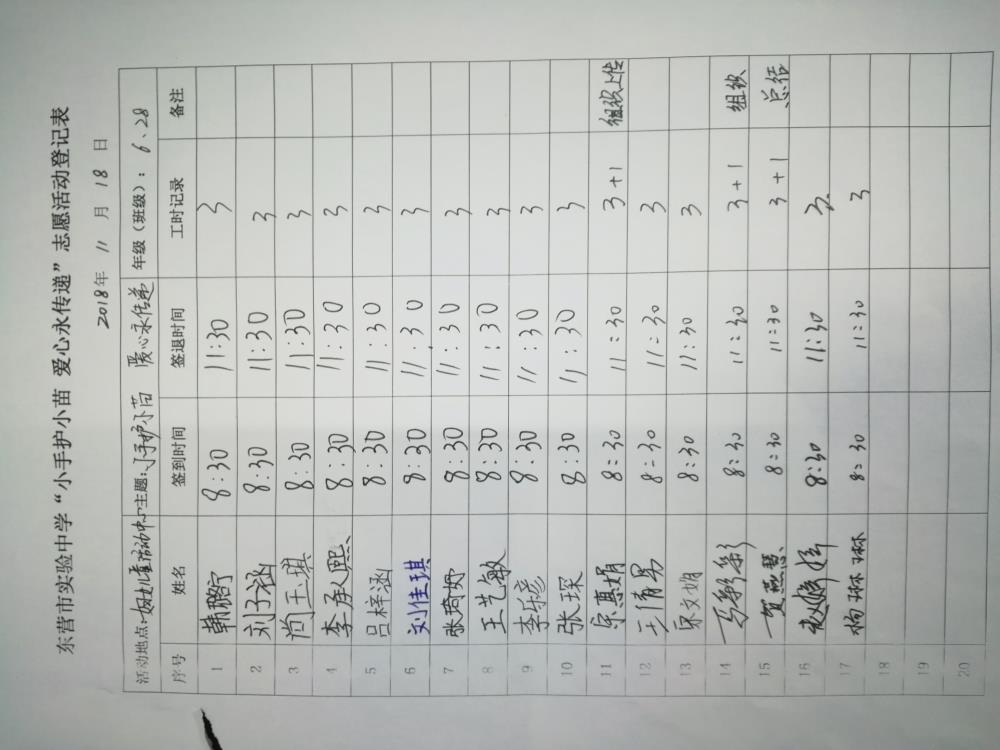 东营市实验中学“小手护小苗 爱心永传递”志愿活动登记表
2018年 11 月 18 日
活动地点:妇女儿童活动中心 主题:小手护小苗 暖心永传递 年级(班级):6、28
序号 姓名 签到时间 签退时间 工时记录 备注
1 韩鹏宁 8:30 11:30 3
2 刘子涵 8:30 11:30 3
3 尚玉琪 8:30 11:30 3
4 李承熙 8:30 11:30 3
5 吕梓涵 8:30 11:30 3
6 刘佳琪 8:30 11:30 3
7 张琦妤 8:30 11:30 3
8 王艺敏 8:30 11:30 3
9 李乐彦 8:30 11:30 3
10 张琛 8:30 11:30 3
11 宗惠娟 8:30 11:30 3+1 组织上传
12 王倩男 8:30 11:30 3
13 宋文娟 8:30 11:30 3
14 马彩彩 8:30 11:30 3+1 组织
15 贾燕慧 8:30 11:30 3+1 总结
16 赵婷婷 8:30 11:30 3
17 杨琳琳 8:30 11:30 3
18
19
20